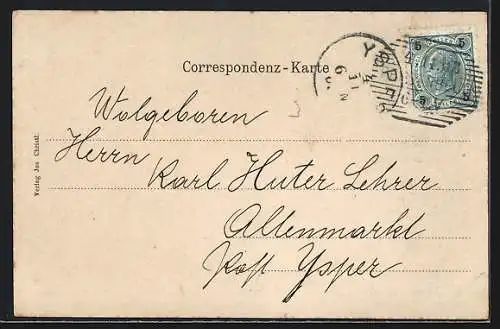 Correspondenz-Karte
YSPER
5 5
5
Wolgeboren
Herrn
Karl Huter Lehrer
Altenmarkt
Post Ysper
Verlag Jos Christl.